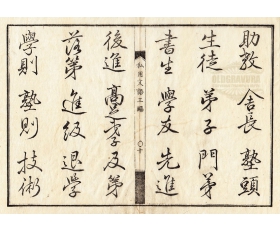 助教 舎長 塾頭
生徒 弟子 門弟
書生 學友 先進
私用文語工編
〇十
後進 髙㐧 及第
落第 進級 退学
學則 塾則 技術